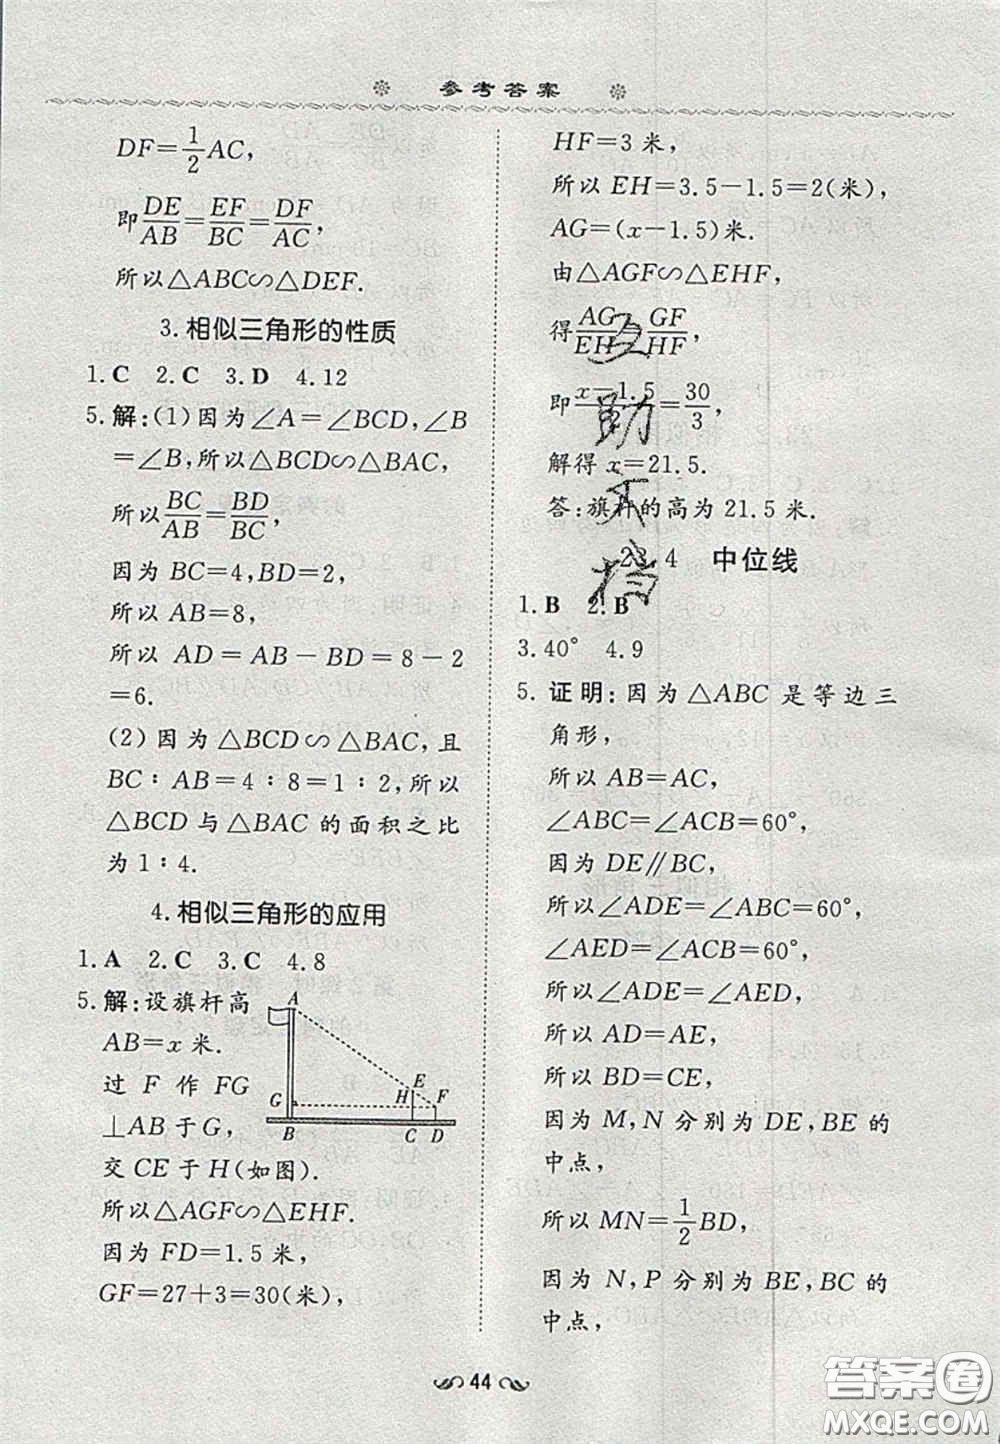 参考答案
DF=1/2AC,
即DE/AB=EF/BC=DF/AC,
所以△ABC∽△DEF.
3.相似三角形的性质
1.C 2.C 3.D 4.12
5.解:(1)因为∠A=∠BCD,∠B
=∠B,所以△BCD∽△BAC,
所以BC/BA=BD/BC,
因为 BC=4,BD=2,
所以 AB=8,
所以 AD=AB-BD=8-2
=6.
(2)因为△BCD∽△BAC,且
BC∶AB=4∶8=1∶2,所以
△BCD与△BAC的面积之比
为1∶4.
4.相似三角形的应用
1.A 2.C 3.C 4.8
5.解:设旗杆高
AB=x米.
过 F 作 FG
⊥AB于G,
交CE于H(如图).
所以△AGF∽△EHF.
因为FD=1.5米,
GF=27+3=30(米),
A
E
H
F
G
B
C
D
HF=3米,
所以EH=3.5-1.5=2(米),
AG=(x-1.5)米.
由△AGF∽△EHF,
得AG/EH=GF/HF,
即x-1.5/2=30/3,
解得x=21.5.
答:旗杆的高为21.5米.
23.4 中位线
1.B 2.B
3.40° 4.9
5.证明:因为△ABC是等边三
角形,
所以AB=AC,
∠ABC=∠ACB=60°,
因为DE∥BC,
所以∠ADE=∠ABC=60°,
∠AED=∠ACB=60°,
所以∠ADE=∠AED,
所以AD=AE,
所以BD=CE,
因为M,N分别为DE,BE的
中点,
所以MN=1/2BD,
因为N,P分别为BE,BC的
中点,
44
互助文档
答案圈
MXQE.COM